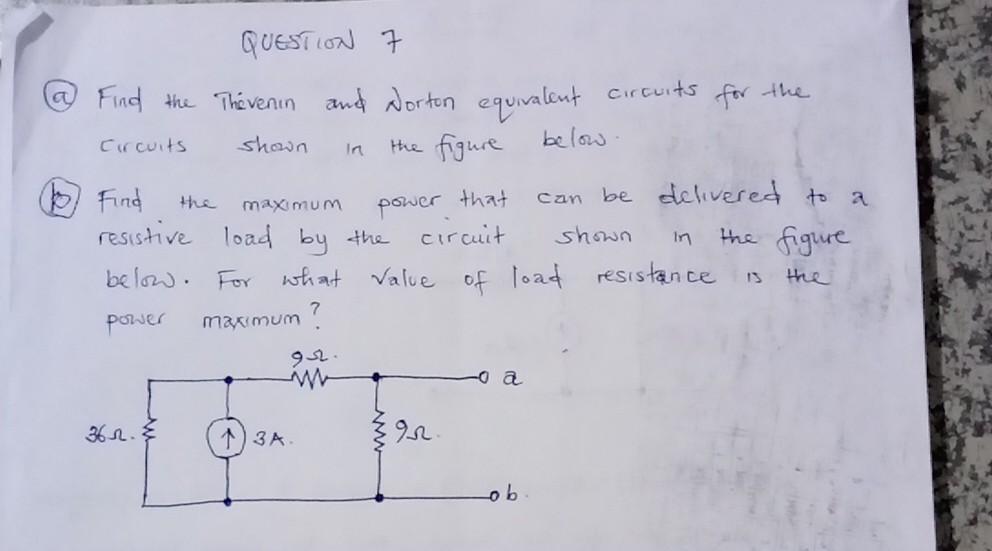 QUESTION 7
(a) Find the Thévenin and Norton equivalent circuits for the
circuits shown in the figure below.
(b) Find the maximum power that can be delivered to a
resistive load by the circuit shown in the figure
below. For what value of load resistance is the
power maximum?
9Ω.
a
36Ω. 3A. 9Ω.
b.